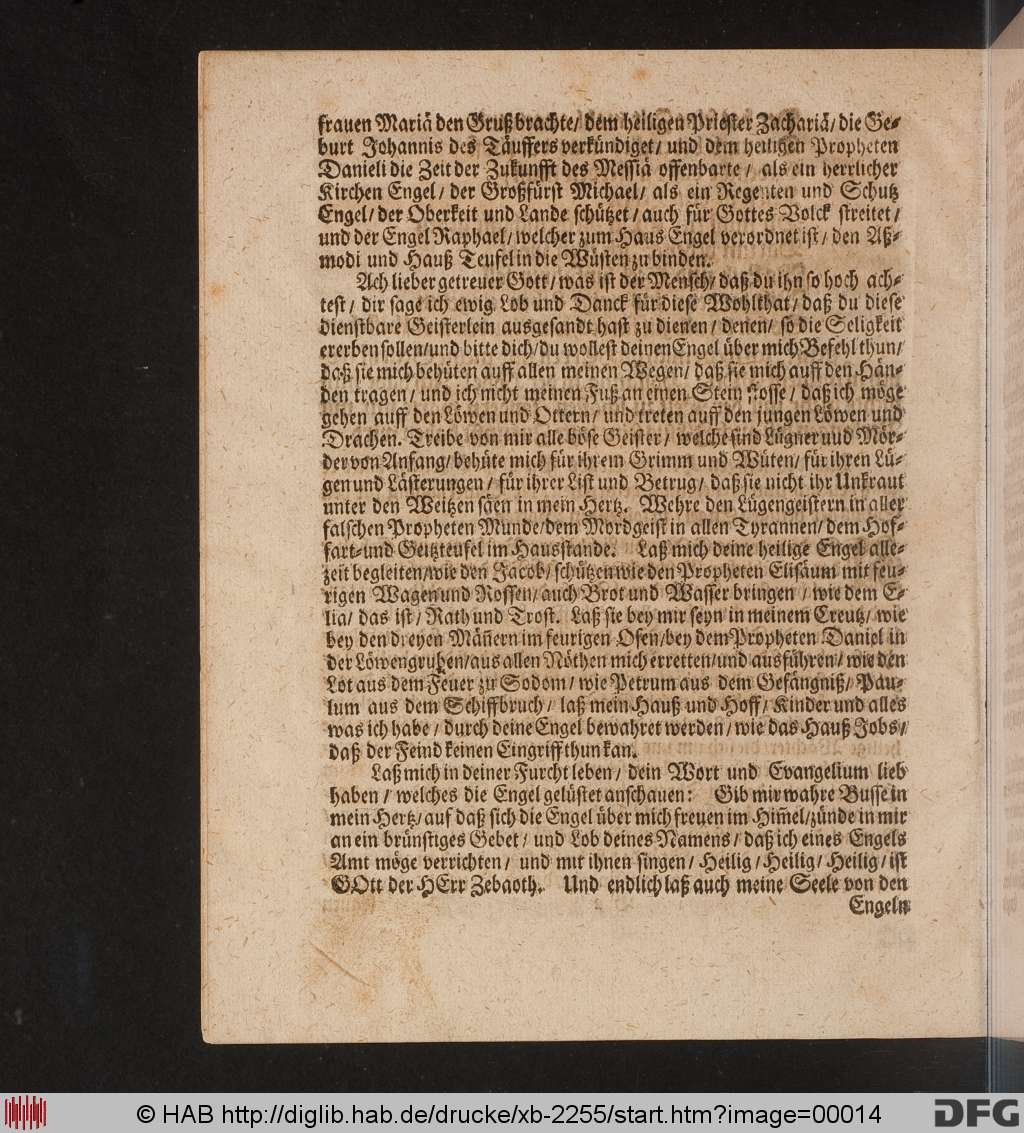 frauen Mariä den Gruß brachte/ dem heiligen Priester Zachariä/ die Ge-
burt Johannis des Täuffers verkündiget/ und dem heiligen Propheten
Danieli die Zeit der Zukunfft des Messiä offenbarte/ als ein herrlicher
Kirchen Engel/ der Großfürst Michael/ als ein Regenten und Schutz
Engel/ der Oberkeit und Lande schützet/ auch für Gottes Volck streitet/
und der Engel Raphael/ welcher zum Haus Engel verordnet ist/ den Aß-
modi und Hauß Teufel in die Wüsten zu binden.
Ach lieber getreuer Gott/ was ist der Mensch/ daß du ihn so hoch ach-
test/ dir sage ich ewig Lob und Danck für diese Wohlthat/ daß du diese
dienstbare Geisterlein ausgesandt hast zu dienen/ denen/ so die Seligkeit
ererben sollen/ und bitte dich/ du wollest deinen Engel über mich Befehl thun/
daß sie mich behüten auff allen meinen Wegen/ daß sie mich auff den Hän-
den tragen/ und ich nicht meinen Fuß an einen Stein stosse/ daß ich möge
gehen auff den Löwen und Ottern/ und treten auff den jungen Löwen und
Drachen. Treibe von mir alle böse Geister/ welche sind Lügner uud Mör-
der von Anfang/ behüte mich für ihrem Grimm und Wüten/ für ihren Lü-
gen und Lästerungen/ für ihrer List und Betrug/ daß sie nicht ihr Unkraut
unter den Weitzen säen in mein Hertz. Wehre den Lügengeistern in aller
falschen Propheten Munde/ dem Mordgeist in allen Tyrannen/ dem Hof-
fart- und Geitzteufel im Hausstande. Laß mich deine heilige Engel alle-
zeit begleiten/ wie den Jacob/ schützen wie den Propheten Elisäum mit feu-
rigen Wagen und Rossen/ auch Brot und Wasser bringen/ wie dem E-
lia/ das ist/ Rath und Trost. Laß sie bey mir seyn in meinem Creutz/ wie
bey den dreyen Mäñern im feurigen Ofen/ bey dem Propheten Daniel in
der Löwengruben/ aus allen Nöthen mich erretten/ und ausführen/ wie den
Lot aus dem Feuer zu Sodom/ wie Petrum aus dem Gefängniß/ Pau-
lum aus dem Schiffbruch/ laß mein Hauß und Hoff/ Kinder und alles
was ich habe/ durch deine Engel bewahret werden/ wie das Hauß Jobs/
daß der Feind keinen Eingriff thun kan.
Laß mich in deiner Furcht leben/ dein Wort und Evangelium lieb
haben/ welches die Engel gelüstet anschauen: Gib mir wahre Busse in
mein Hertz/ auf daß sich die Engel über mich freuen im Him̃el/ zünde in mir
an ein brünstiges Gebet/ und Lob deines Namens/ daß ich eines Engels
Amt möge verrichten/ und mit ihnen singen/ Heilig/ Heilig/ Heilig/ ist
GOtt der HErr Zebaoth. Und endlich laß auch meine Seele von den
Engeln
© HAB http://diglib.hab.de/drucke/xb-2255/start.htm?image=00014
DFG